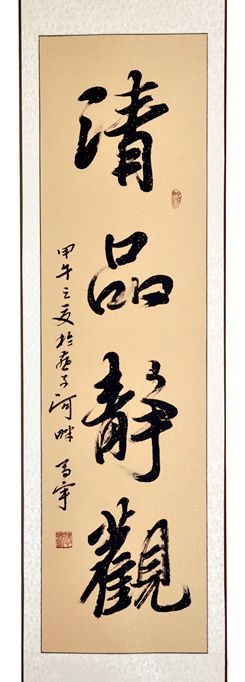 清品靜觀
甲午之夏於燕子河畔 马宇